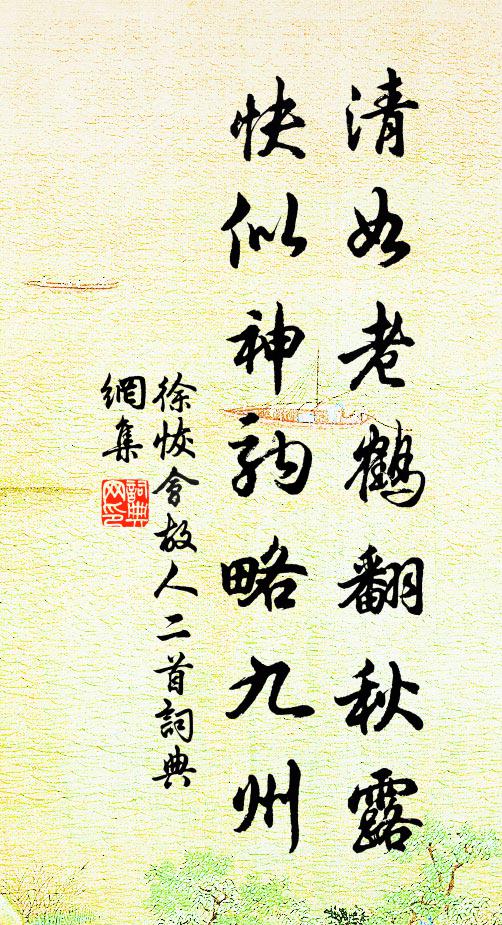 清如老鶴翻秋露
快似神駒略九州
徐恔會故人二首詞典
網集
詞典
网印